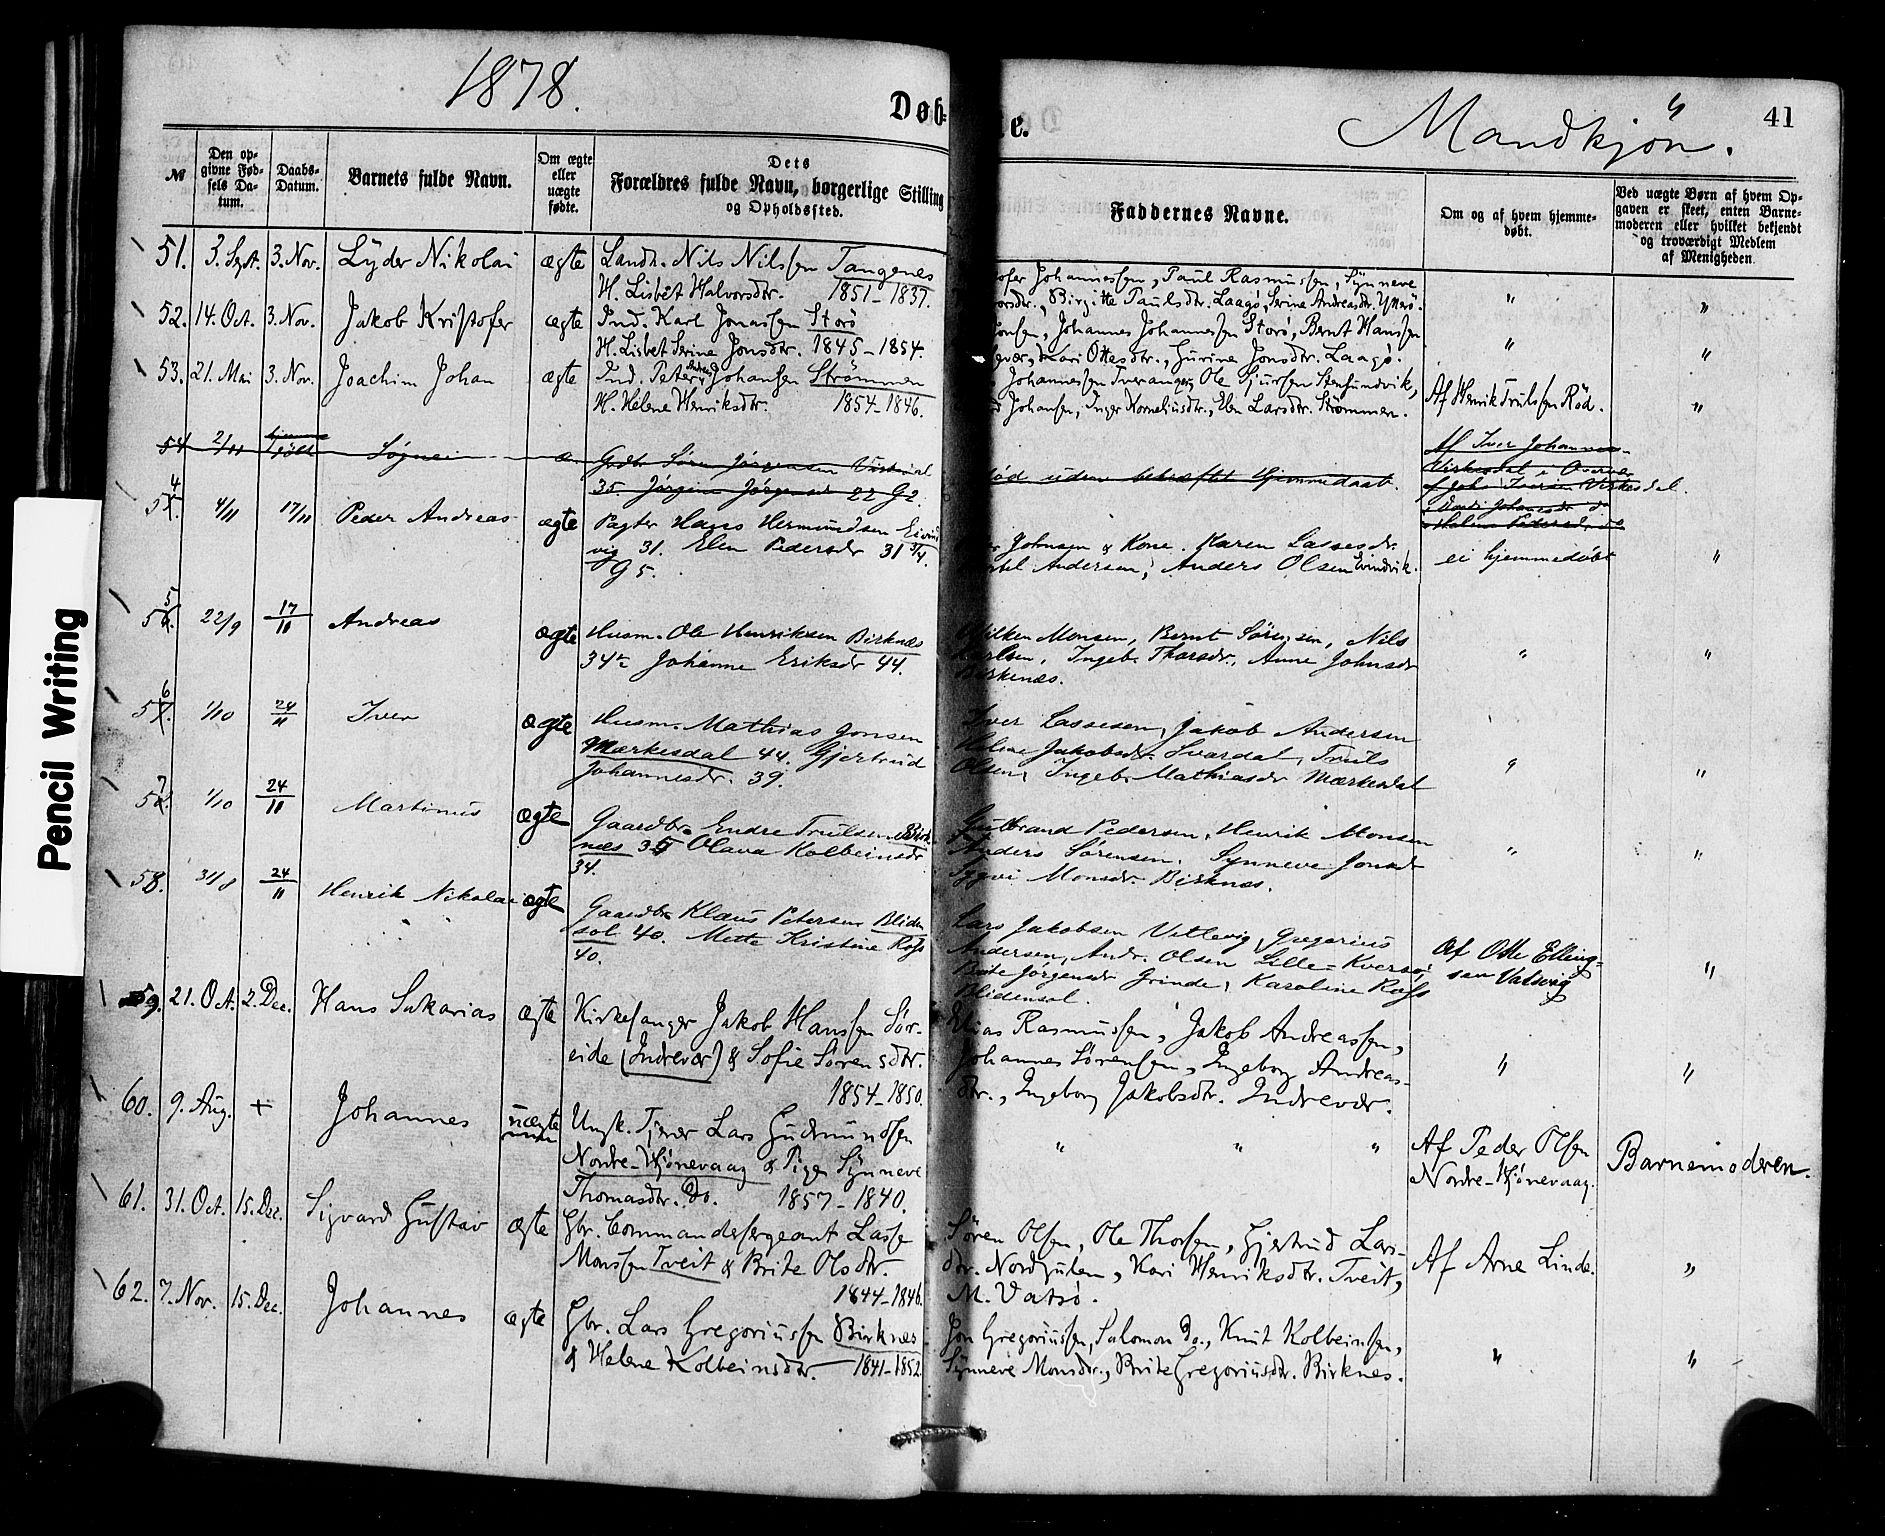 1878.
Døb-
e.
Mandkjön.
41
№
Den op-
givne Fød-
sels Da-
tum.
Daabs-
Datum.
Barnets fulde Navn.
Om ægte
eller
uægte
fødte.
Dets
Forældres fulde Navn, borgerlige Stilling
og Opholdssted.
Faddernes Navne.
Om og af hvem hjemme-
døbt.
Ved uægte Børn af hvem Op-
gaven er skeet, enten Barne-
moderen eller hvilket bekjendt
og troværdigt Medlem
af Menigheden.
51. 3. Sept. 3. Nov. Lyder Nikolai ægte Landh. Nils Nilssen Tangenes
H. Lisbet Halvorsdtr. 1851-1837.
ofer Johannessen, Paul Rasmussen, Synneve
orsdtr., Birgitte Paulsdtr. Laagö, Serine Andreasdtr. Ytterö. " "
52. 14. Oct. 3. Nov. Jakob Kristofer ægte Ind. Karl Jonassen Storö
H. Lisbet Serine Jonsdtr. 1845-1854.
onsen, Johannes Johannessen Storö, Bernt Hanssen
evær, Kari Ottesdtr., Gurine Jonsdtr. Laagö. " "
53. 21. Mai 3. Nov. Joachim Johan ægte Ind. Peter Andreas Johansen Strömmen
H. Helene Henriksdtr. 1854-1846.
Johannessen Tveranger, Ole Sjursen Stensundvik,
Johansen, Inger Korneliusdtr., Elen Larsdtr. Strömmen.
Af Henrik Trulssen Röd. "
54 2/11 hjemme
døbt Sögnei Gdbr Sören Jörgensen
35. Jörgine Jörgensdr 22 G2.
død uden bekræftet Hjemmedaab.
Af Iver Johannes-
Virkesdal i Overvær
af Johs Iversen Virkesdal.
54. 4/11 17/11 Peder Andreas ægte Pagter Hans Hermundsen Eivind
vig 31. Elen Pedersdr 31 3/4.
G5.
Johnsen & Kone. Karen Lassesdr.
Andersen, Anders Olsen Evindvik.
ei hjemmedöbt "
55. 22/9 17/11 Andreas ægte Husm. Ole Henriksen Birknæs
34 Johanne Eriksdr 44.
Wilken Monsen, Bernt Sörensen, Nils
Karlsen, Ingeb. Thorsdr., Anne Johnsdr
Birkenæs. " "
56. 1/10 24/11 Iver ægte Husm. Mathias Jonsen
Mærkesdal 44. Gjertrud
Johannesdr. 39.
Iver Lassesen, Jakob Andersen
Jakobsdr. Svardal, Truls
Olsen, Ingeb. Mathiasdr Mærkesdal " "
57. 1/10 24/11 Martinus ægte Gaardbr. Endre Trulsen Birk
næs 35 Olava Kolbeinsdr
34.
Gulbrand Pedersen, Henrik Monsen
Anders Sörensen. Synneve Jonsd
Monsdr. Birknæs. " "
58. 31/8 24/11 Henrik Nikolai ægte Gaardbr Klaus Petersen Bliden
sol 40. Mette Kristine Rafs
40.
Lars Jakobsen Vetlevig, Gregorius
Andersen, Andr. Olsen Lille-Kversö,
Brite Jörgensdr Grinde, Karoline Rafs
Blidensol.
Af Otte Elling-
sen Vatsvig "
59. 21. Oct. 2. Dec. Hans Sakarias ægte Kirkesanger Jakob Hanssen Sör-
eide (Indrevær) & Sofie Sörensdtr.
1854-1850.
Elias Rasmussen, Jakob Andreassen,
Johannes Sörensen, Ingeborg Andreas-
dtr., Ingeborg Jakobsdtr. Indrevær. " "
60. 9. Aug. + Johannes uægte Ungk. Tjener Lars Gudmundsen
Nordre-Hjönevaag & Pige Synneve
Thomasdtr. Do. 1857-1840.
" " "
Af Peder Olsen
Nordre-Hjönevaag. Barnemoderen.
61. 31. Oct. 15. Dec. Sigvard Gustav ægte Gbr. Commandersergeant Lasse
Monssen Tveit & Brite Olsdtr.
1844-1846.
Sören Olsen, Ole Thorsen, Gjertrud Lars-
dtr. Nordgulen, Kari Henriksdtr. Tveit,
M. Vatsö.
Af Arne Linde. "
62. 7. Nov. 15. Dec. Johannes ægte Gbr. Lars Gregoriussen Birknes
& Helene Kolbeinsdtr. 1841-1852
Jon Gregoriussen, Salomon Do., Knut Kolbeinsen,
Synneve Monsdtr., Brite Gregoriusdtr. Birknes. " "
Pencil Writing